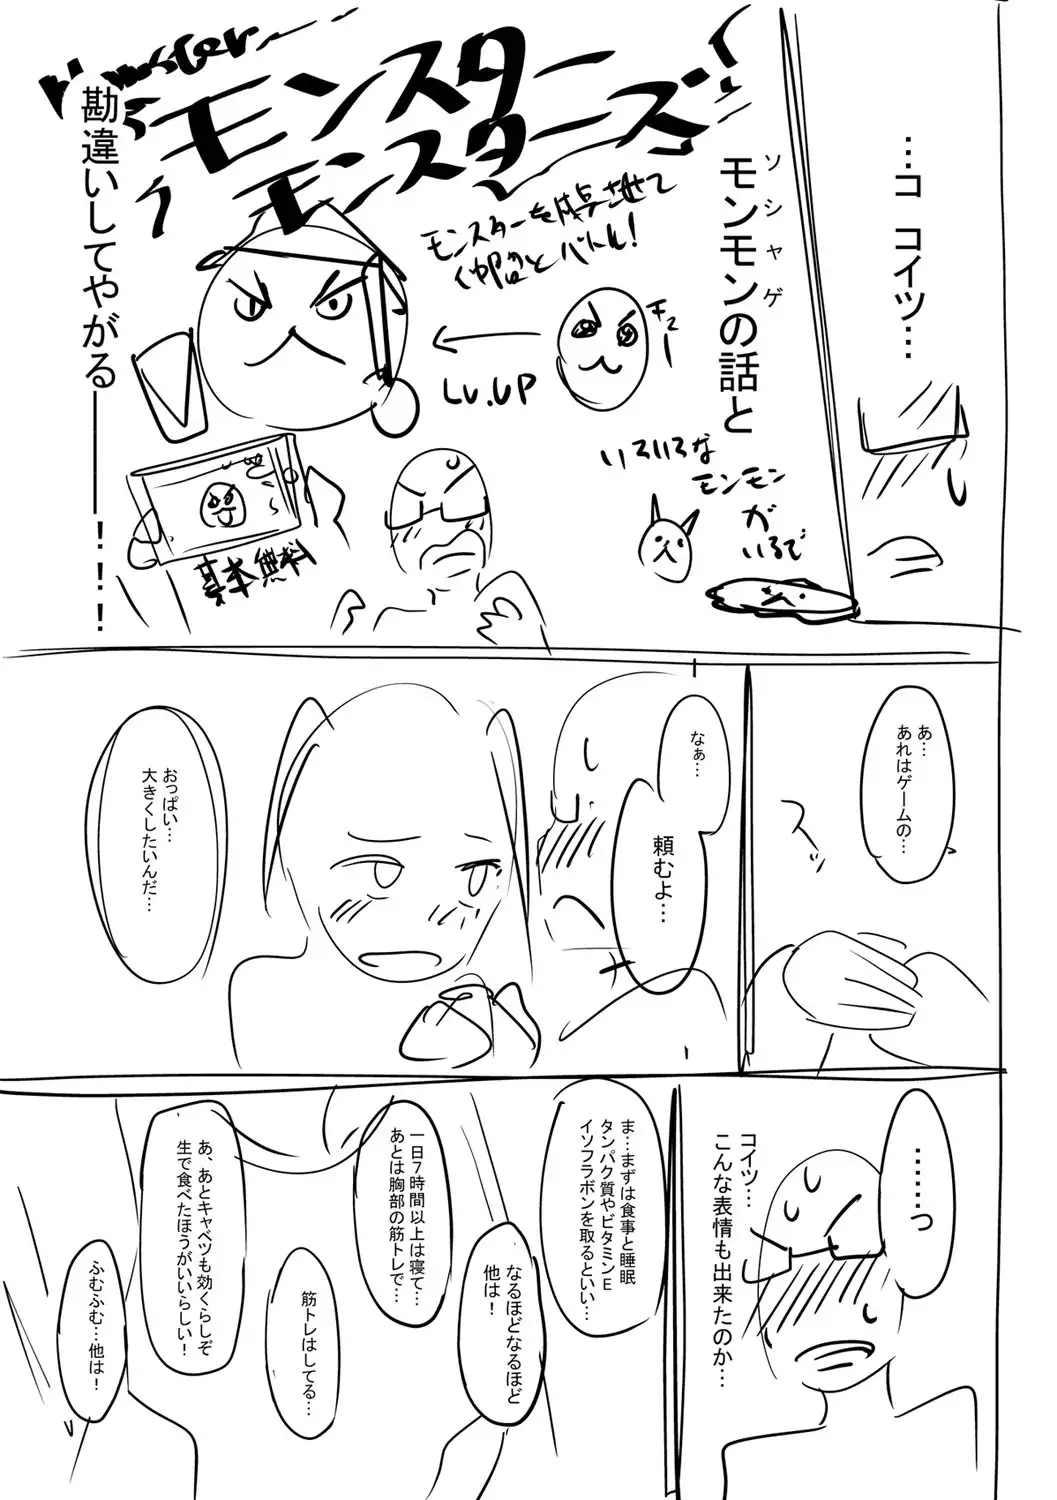 …コ コイツ…
モンモンの話と
ソシャゲ
勘違いしてやがる――！！！
モンスター
モンスターズ！
モンスターを
バトル！
チュー
Lv.UP
基本無料
いろいろな
モンモン
が
いるで
あ…
あれはゲームの…
スッ
なぁ…
頼むよ…
おっぱい…
大きくしたいんだ…
……っ
コイツ…
こんな表情も出来たのか…
ま…まずは食事と睡眠
タンパク質やビタミンE
イソフラボンを取るといい…
なるほどなるほど
他は！
一日7時間以上は寝て…
あとは胸部の筋トレで…
筋トレはしてる…
あ、あとキャベツも効くらしぞ
生で食べたほうがいいらしい！
ふむふむ…他は！